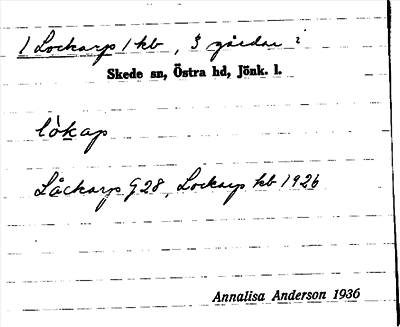 1 Lockarp 1 kb, 3 gårdar i
Skede sn, Östra hd, Jönk. l.
lòkap
Låckarp G28, Lockarp kb 1926
Annalisa Anderson 1936